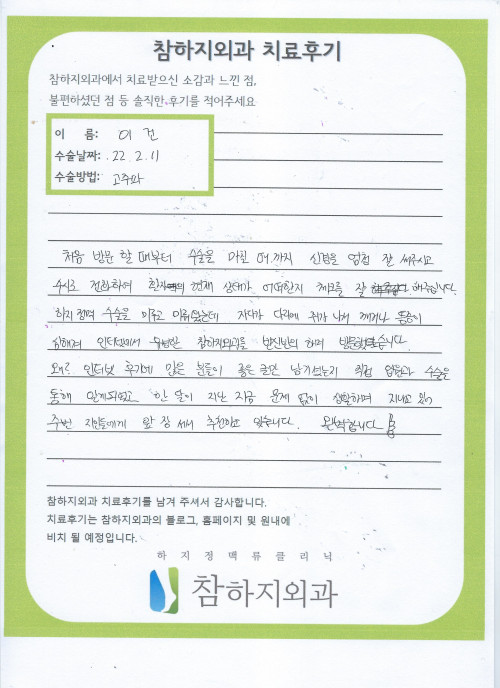 참하지외과 치료후기
참하지외과에서 치료받으신 소감과 느낀 점,
불편하셨던 점 등 솔직한 후기를 적어주세요
이 름: 이 건
수술날짜: 22. 2. 11
수술방법: 고주파
처음 방문 할 때부터 수술을 마친 여기까지 신경을 엄청 잘 써주시고
수시로 전화하여 환자의 현재 상태가 어떠한지 체크를 잘 해주십니다.
하지정맥 수술을 미루고 미뤄왔는데 자다가 다리에 쥐가 나서 깨거나 통증이
심해져 인터넷에서 유명한 참하지외과를 반신반의 하며 방문했었습니다.
왜 인터넷 후기에 많은 분들이 좋은 글만 남기셨는지 직접 방문과 수술을
통해 알게되었고 한 달이 지난 지금 문제 없이 생활하며 지내고 있어
주변 지인들에게 앞 장 서서 추천하고 있습니다. 완벽합니다
참하지외과 치료후기를 남겨 주셔서 감사합니다.
치료후기는 참하지외과의 블로그, 홈페이지 및 원내에
비치 될 예정입니다.
하지정맥류클리닉
참하지외과